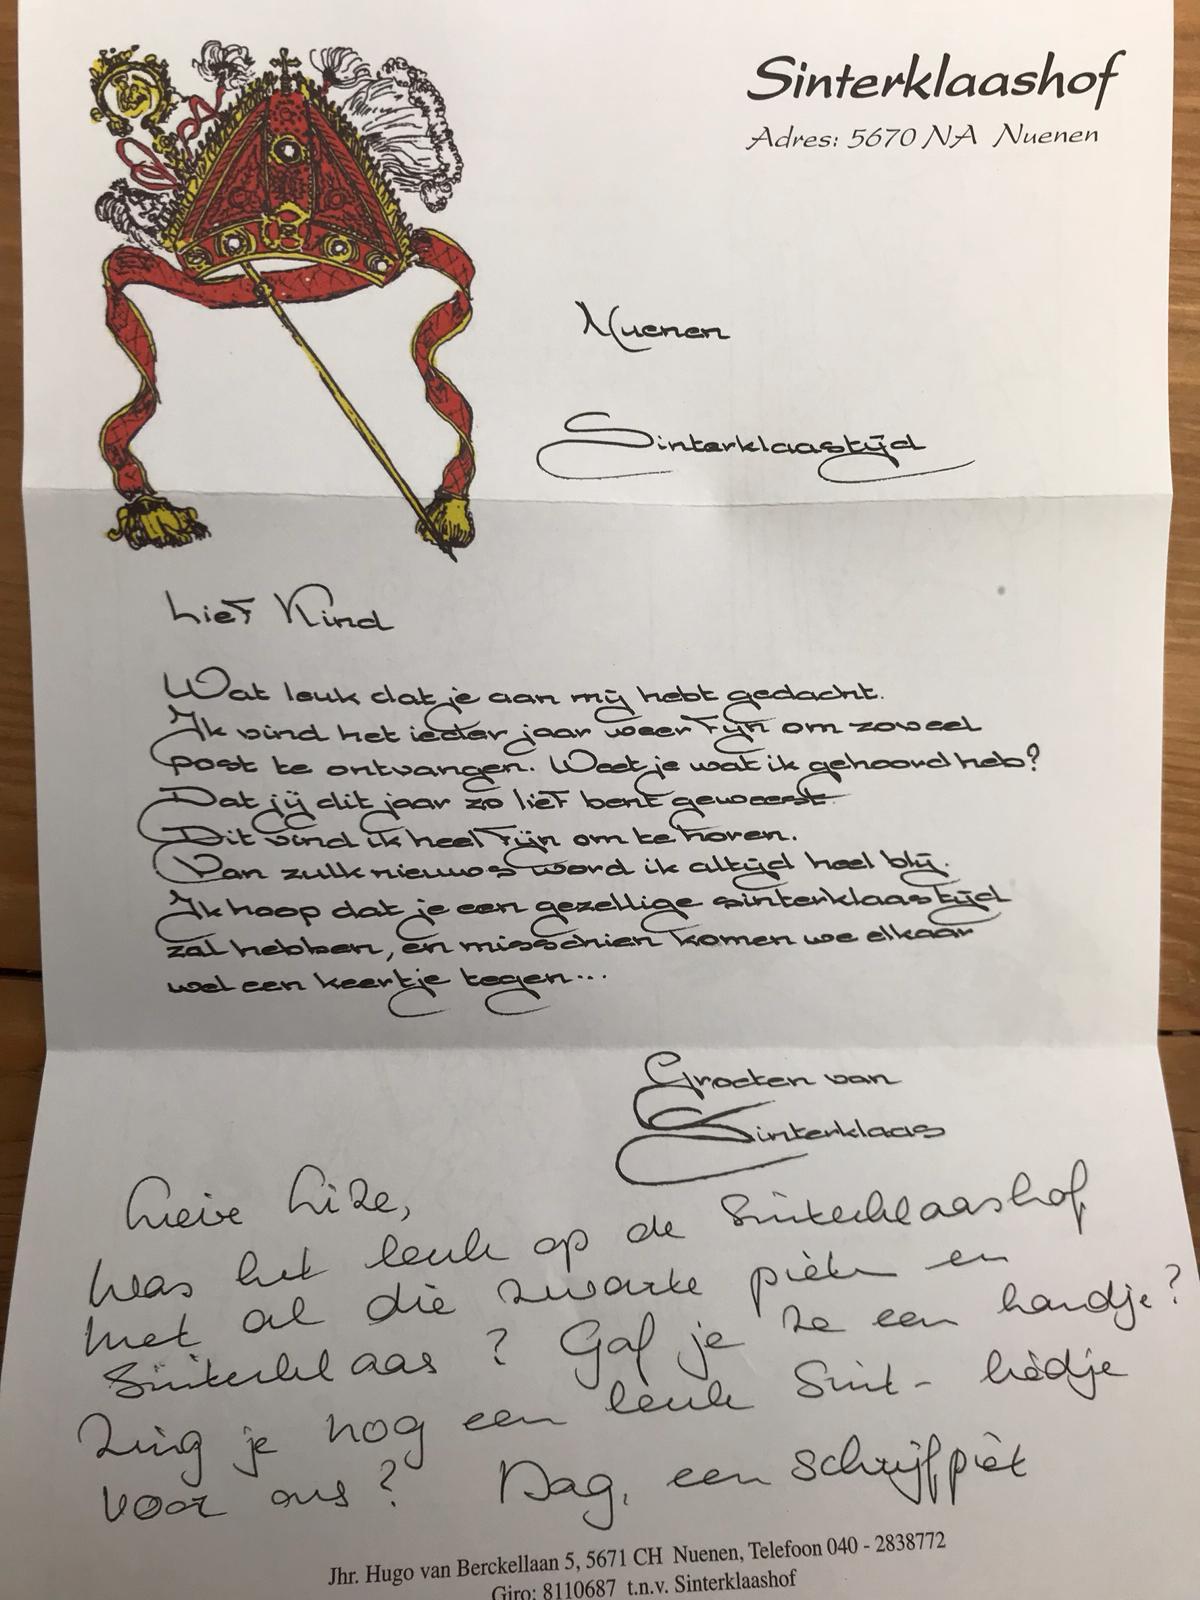 Sinterklaashof
Adres: 5670 NA Nuenen
Nuenen
Sinterklaastijd
Lief Kind
Wat leuk dat je aan mij hebt gedacht.
Ik vind het ieder jaar weer fijn om zoveel
post te ontvangen. Weet je wat ik gehoord heb?
Dat jij dit jaar zo lief bent geweest.
Dit vind ik heel fijn om te horen.
Van zulk nieuws word ik altijd heel blij.
Ik hoop dat je een gezellige sinterklaastijd
zal hebben, en misschien komen we elkaar
wel een keertje tegen...
Groeten van
Sinterklaas
Lieve Lize,
Was het leuk op de Sinterklaashof
met al die zwarte pieten en
Sinterklaas? Gaf je ze een handje?
Zing je nog een leuk Sint-liedje
voor ons? Dag, een schrijfpiet
Jhr. Hugo van Berckellaan 5, 5671 CH Nuenen, Telefoon 040 - 2838772
Giro: 8110687 t.n.v. Sinterklaashof